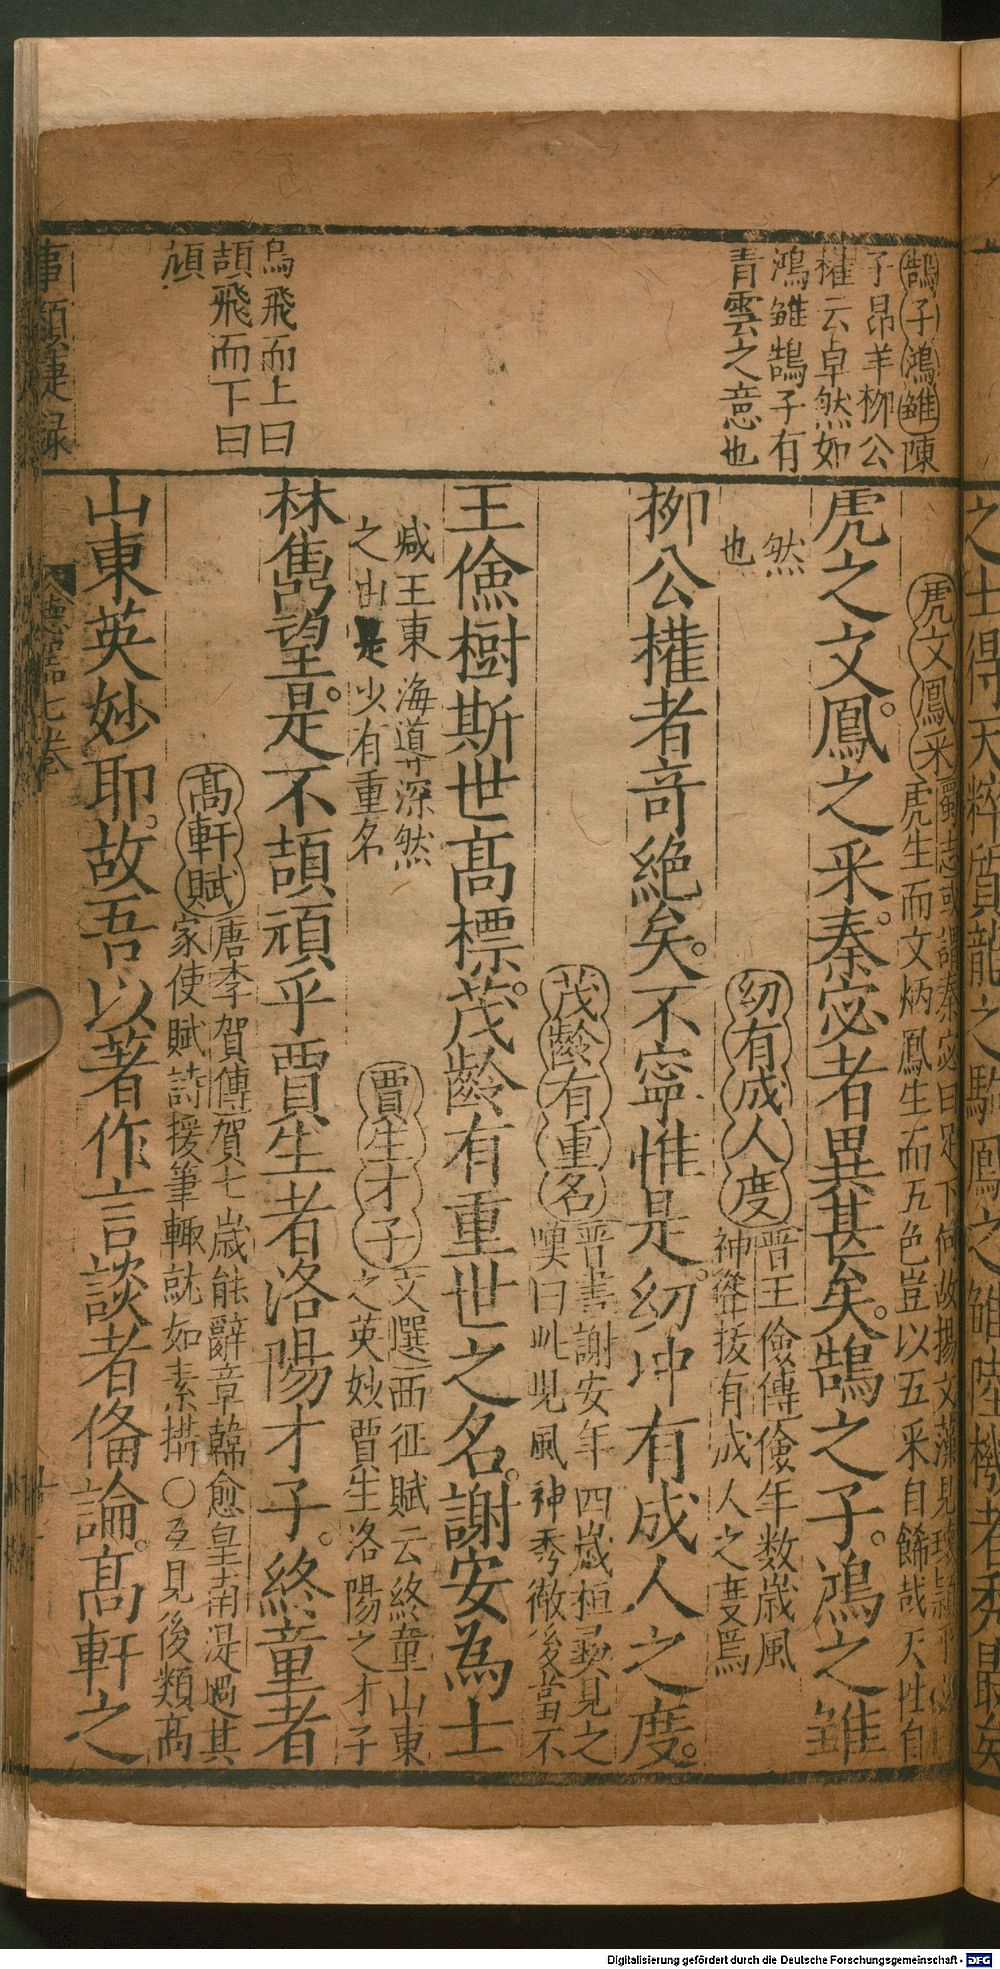 鵠子鴻雖陳
子昂羊栁公
權云卓然如
鴻雖鵠子有
青雲之意也
烏飛而上曰
頡飛而下曰
頏
虎文鳳采蜀志或謂秦宓曰足下何故揚文藻見瓌穎乎
虎生而文炳鳳生而五色豈以五采自餙哉天性自
虎之文鳳之采秦宓者異甚矣鵠之子鴻之雖
然
也
幼有成人度晋王儉傳儉年数歲風
神聳拔有成人之度焉
栁公權者竒絶矣不寧惟是幼冲有成人之度
茂齡有重名晋書謝安年四歲桓彛見之
嘆曰此児風神秀徹後當不
王儉樹斯世髙標茂齡有重世之名謝安為士
减王東海導深然
之由是少有重名
賈生才子文選西征賦云終童山東
之英妙賈生洛陽之才子
林雋望是不頡頏乎賈生者洛陽才子終童者
髙軒賦唐李賀傳賀七歲能辭章韓愈皇甫湜過其
家使賦詩援筆輙就如素搆○互見後類髙
山東英妙耶故吾以著作言談者俻論髙軒之
事類捷録
七卷
Digitalisierung gefördert durch die Deutsche Forschungsgemeinschaft - DFG